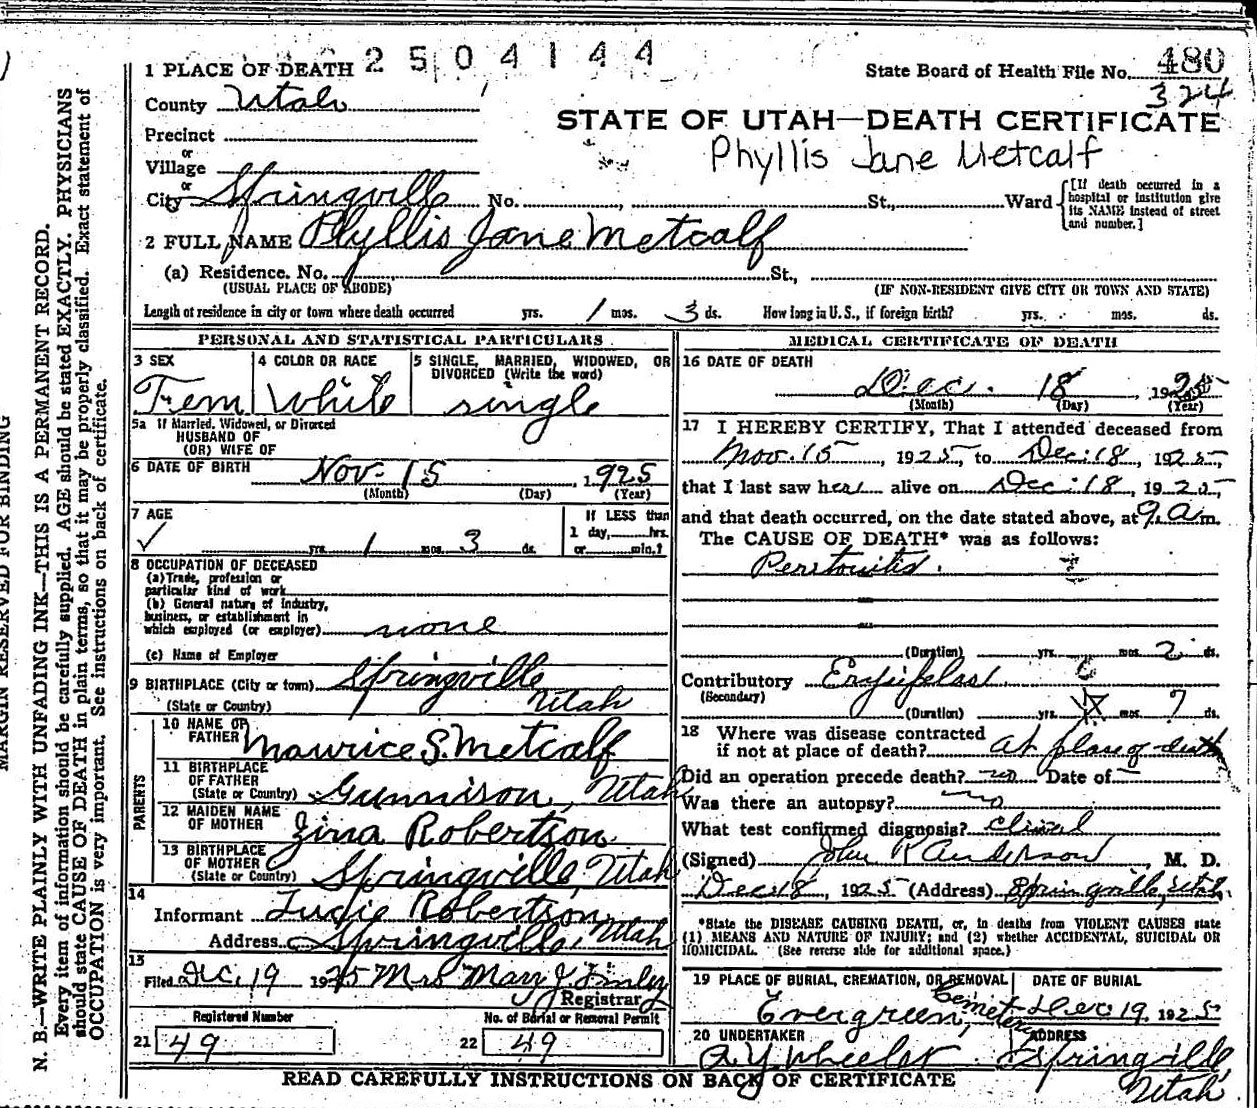 2504144
1 PLACE OF DEATH
State Board of Health File No. 480
324
County Utah
STATE OF UTAH—DEATH CERTIFICATE
Phyllis Jane Metcalf
Precinct
or
Village
or
City Springville No. , St., Ward
[If death occurred in a hospital or institution give its NAME instead of street and number.]
2 FULL NAME Phyllis Jane Metcalf
(a) Residence. No. St.,
(USUAL PLACE OF ABODE) (IF NON-RESIDENT GIVE CITY OR TOWN AND STATE)
Length of residence in city or town where death occurred yrs. 1 mos. 3 ds. How long in U. S., if foreign birth? yrs. mos. ds.
PERSONAL AND STATISTICAL PARTICULARS
3 SEX
Fem
4 COLOR OR RACE
White
5 SINGLE, MARRIED, WIDOWED, OR
DIVORCED (Write the word)
single
5a If Married, Widowed, or Divorced
HUSBAND OF
(OR) WIFE OF
6 DATE OF BIRTH Nov. 15 1925
(Month) (Day) (Year)
7 AGE
yrs. 1 mos. 3 ds.
If LESS than
1 day, hrs.
or min.?
8 OCCUPATION OF DECEASED
(a) Trade, profession or
particular kind of work
(b) General nature of industry,
business, or establishment in
which employed (or employer) none
(c) Name of Employer
9 BIRTHPLACE (City or town) Springville
(State or Country) Utah
PARENTS
10 NAME OF
FATHER Maurice S. Metcalf
11 BIRTHPLACE
OF FATHER
(State or Country) Gunnison, Utah
12 MAIDEN NAME
OF MOTHER Zina Robertson
13 BIRTHPLACE
OF MOTHER
(State or Country) Springville, Utah
14
Informant Robertson
Address Springville, Utah
15
Filed Dec. 19 1925 Mrs Mary J. Finley
Registrar
Registered Number
21 49
No. of Burial or Removal Permit
22 49
MEDICAL CERTIFICATE OF DEATH
16 DATE OF DEATH
Dec. 18 1925
(Month) (Day) (Year)
17 I HEREBY CERTIFY, That I attended deceased from
Nov. 15, 1925, to Dec. 18, 1925,
that I last saw her alive on Dec. 18, 1925,
and that death occurred, on the date stated above, at 9 a m.
The CAUSE OF DEATH* was as follows:
Peritonitis.
(Duration) yrs. mos. 2 ds.
Contributory Erysipelas
(Secondary)
(Duration) yrs. mos. 7 ds.
18 Where was disease contracted
if not at place of death? at place of death
Did an operation precede death? no Date of —
Was there an autopsy? no
What test confirmed diagnosis? clinical
(Signed) John R Anderson, M. D.
Dec 18, 1925 (Address) Springville, Utah.
*State the DISEASE CAUSING DEATH, or, in deaths from VIOLENT CAUSES state
(1) MEANS AND NATURE OF INJURY; and (2) whether ACCIDENTAL, SUICIDAL OR
HOMICIDAL. (See reverse side for additional space.)
19 PLACE OF BURIAL, CREMATION, OR REMOVAL
Evergreen, Cemetery
DATE OF BURIAL
Dec 19, 1925
20 UNDERTAKER
A Y Wheeler
ADDRESS
Springville,
Utah
READ CAREFULLY INSTRUCTIONS ON BACK OF CERTIFICATE
MARGIN RESERVED FOR BINDING
N. B.—WRITE PLAINLY WITH UNFADING INK—THIS IS A PERMANENT RECORD.
Every item of information should be carefully supplied. AGE should be stated EXACTLY. PHYSICIANS
should state CAUSE OF DEATH in plain terms, so that it may be properly classified. Exact statement of
OCCUPATION is very important. See instructions on back of certificate.